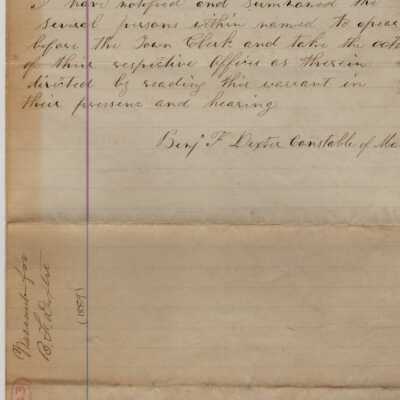 I have notified and sumoned the
several persons within named to apear
before the Town Clerk and take the oath
of their respective offices as therein
dirited by reading this warrant in
their presence and hearing
Benj F. Dexter Constable of Ma
Warrant for
B. F. Dexter
(1889)